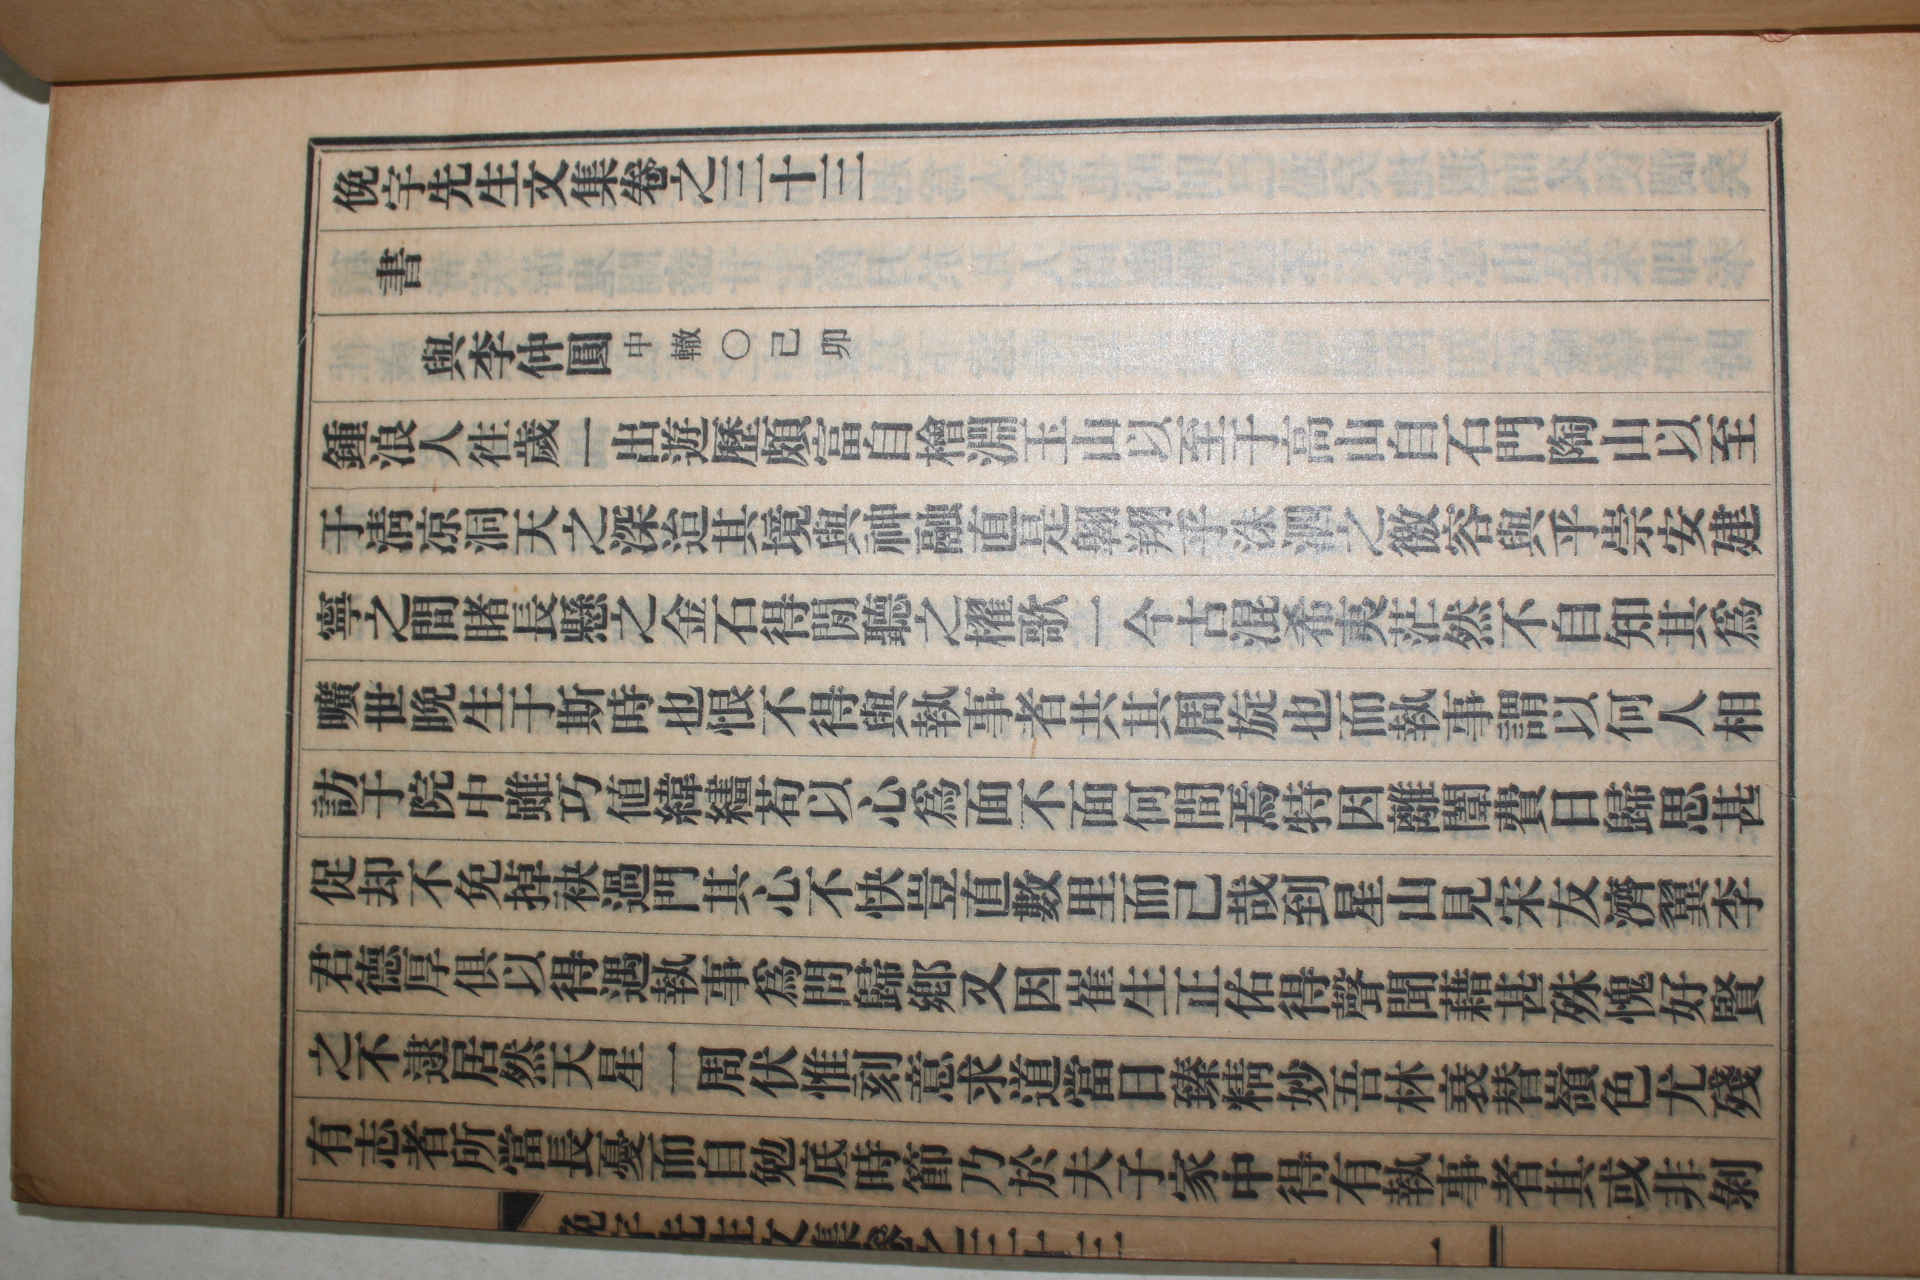 俛宇先生文集卷之三十三
書
與李仲圓中轍○己卯
鍾浪人往歲一出遊歷頗富自檜淵玉山以至于高山自石門陶山以至
于淸凉洞天之深迨其境與神融直是翶翔乎洙泗之徼容與乎崇安建
寧之間睹長懸之金石得閒聽之櫂歌一今古混希夷茫然不自知其爲
曠世晩生于斯時也恨不得與執事者共其周旋也而執事謂以何人相
訪于院中雖巧値緯繣苟以心爲面不面何間焉特因離闈費日歸思甚
促却不免掉袂過門其心不快豈直數里而已哉到星山見宋友濟翼李
君德厚俱以得遇執事爲問歸鄕又因崔生正佑得聲聞藉甚殊愧好賢
之不逮居然天星一周伏惟刻意求道當日臻精妙吾林衰替嶺色尤殘
有志者所當長憂而自勉底時節乃於夫子家中得有執事者其或非剝
俛宇先生文集卷之三十三
一